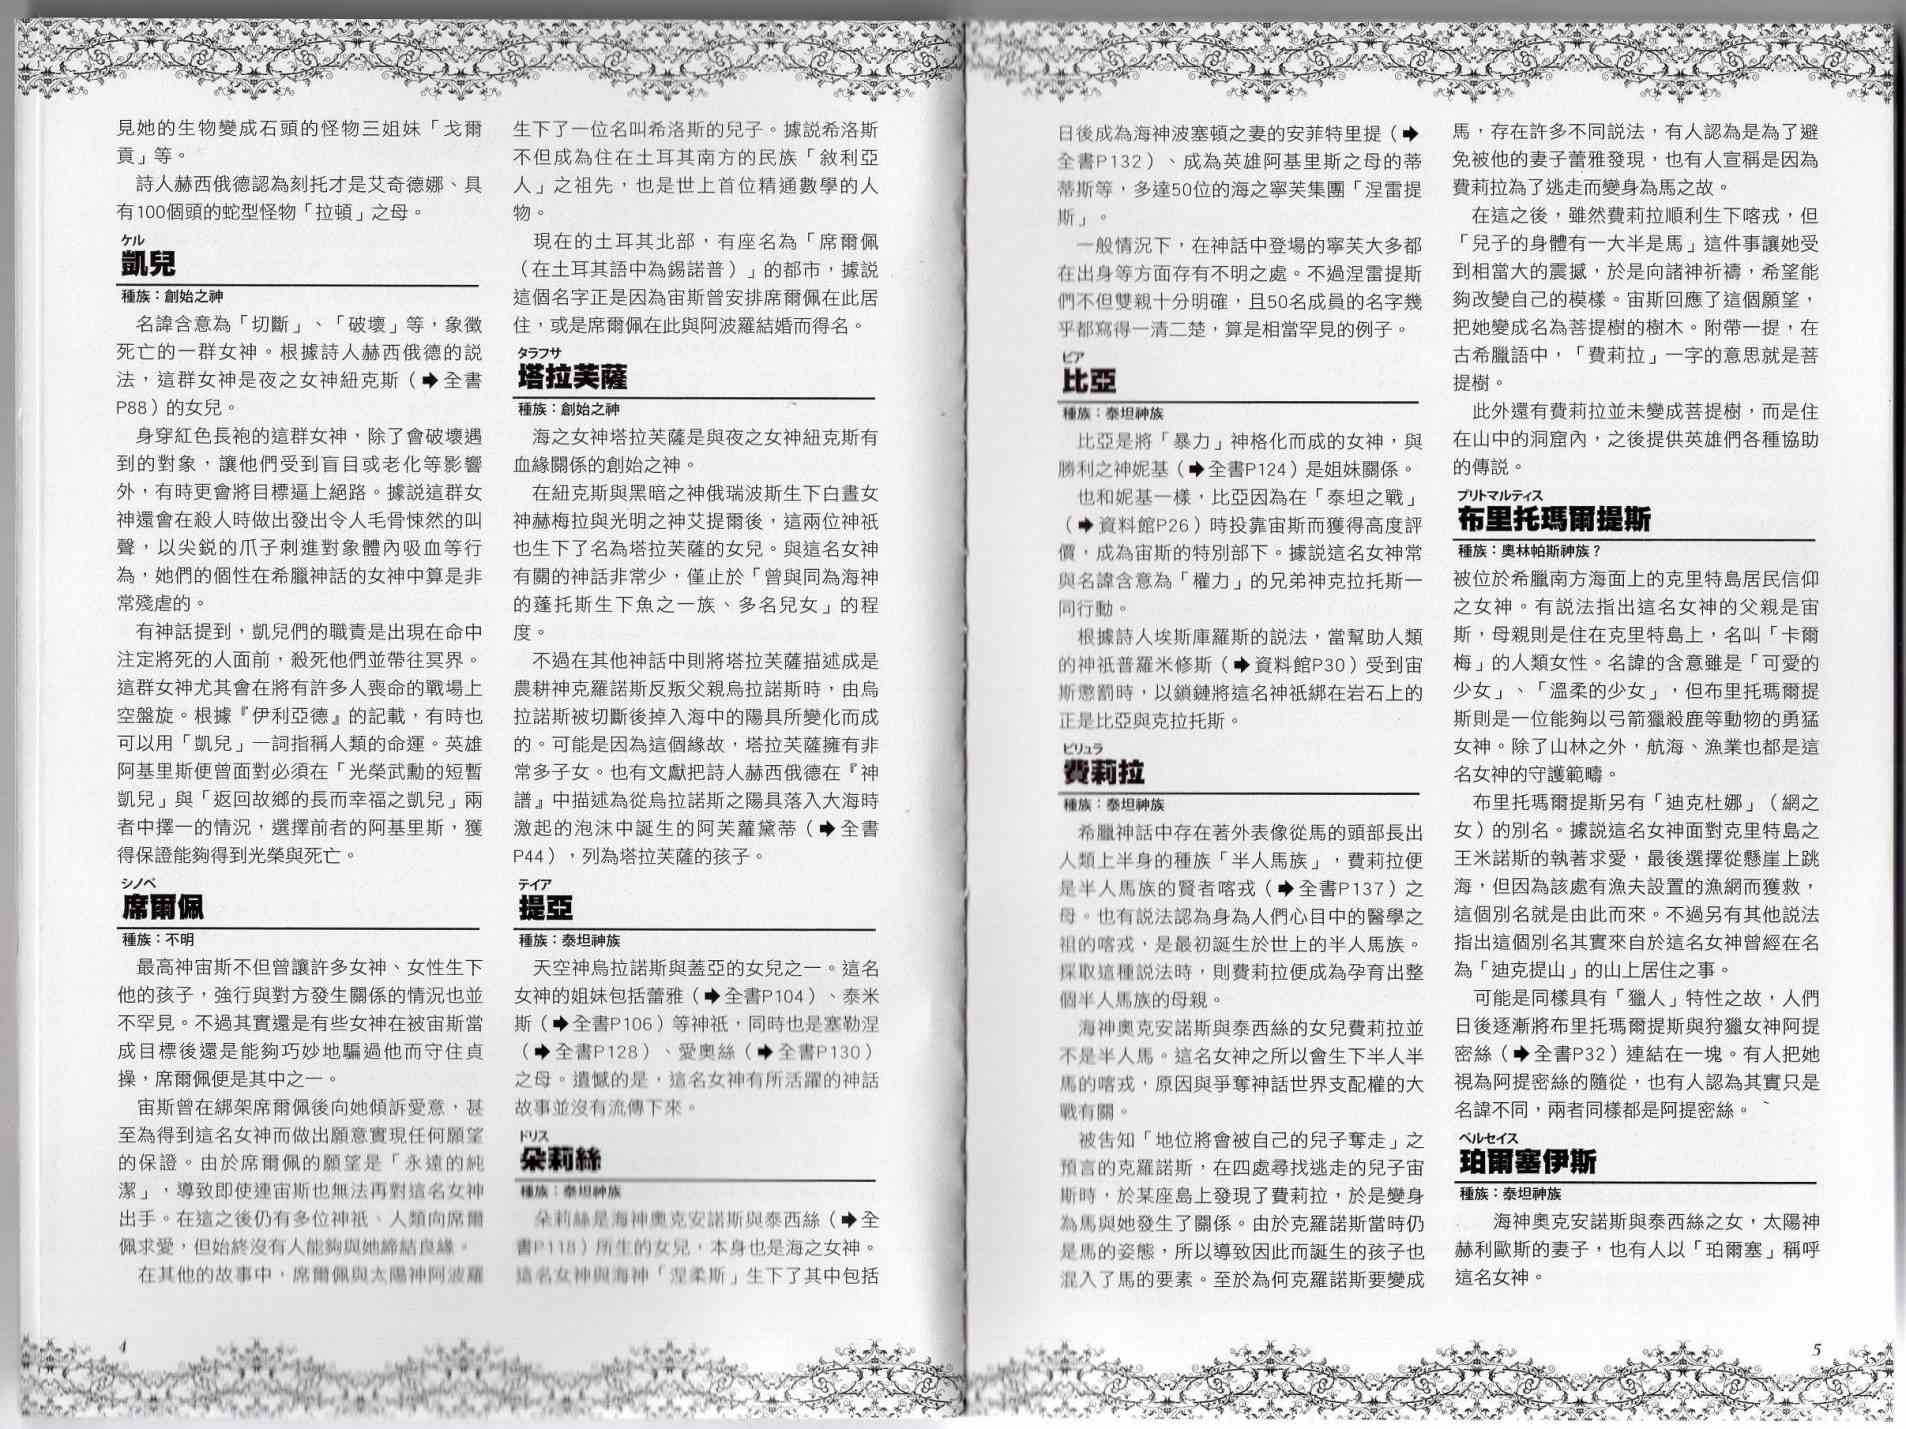 見她的生物變成石頭的怪物三姐妹「戈爾
貢」等。
詩人赫西俄德認為刻托才是艾奇德娜、具
有100個頭的蛇型怪物「拉頓」之母。
ケル
凱兒
種族：創始之神
名諱含意為「切斷」、「破壞」等，象徵
死亡的一群女神。根據詩人赫西俄德的說
法，這群女神是夜之女神紐克斯（➡全書
P88）的女兒。
身穿紅色長袍的這群女神，除了會破壞遇
到的對象，讓他們受到盲目或老化等影響
外，有時更會將目標逼上絕路。據說這群女
神還會在殺人時做出發出令人毛骨悚然的叫
聲，以尖銳的爪子刺進對象體內吸血等行
為，她們的個性在希臘神話的女神中算是非
常殘虐的。
有神話提到，凱兒們的職責是出現在命中
注定將死的人面前，殺死他們並帶往冥界。
這群女神尤其會在將有許多人喪命的戰場上
空盤旋。根據『伊利亞德』的記載，有時也
可以用「凱兒」一詞指稱人類的命運。英雄
阿基里斯便曾面對必須在「光榮武勳的短暫
凱兒」與「返回故鄉的長而幸福之凱兒」兩
者中擇一的情況，選擇前者的阿基里斯，獲
得保證能夠得到光榮與死亡。
シノペ
席爾佩
種族：不明
最高神宙斯不但曾讓許多女神、女性生下
他的孩子，強行與對方發生關係的情況也並
不罕見。不過其實還是有些女神在被宙斯當
成目標後還是能夠巧妙地騙過他而守住貞
操，席爾佩便是其中之一。
宙斯曾在綁架席爾佩後向她傾訴愛意，甚
至為得到這名女神而做出願意實現任何願望
的保證。由於席爾佩的願望是「永遠的純
潔」，導致即使連宙斯也無法再對這名女神
出手。在這之後仍有多位神祇、人類向席爾
佩求愛，但始終沒有人能夠與她締結良緣。
在其他的故事中，席爾佩與太陽神阿波羅
生下了一位名叫希洛斯的兒子。據說希洛斯
不但成為住在土耳其南方的民族「敘利亞
人」之祖先，也是世上首位精通數學的人
物。
現在的土耳其北部，有座名為「席爾佩
（在土耳其語中為錫諾普）」的都市，據說
這個名字正是因為宙斯曾安排席爾佩在此居
住，或是席爾佩在此與阿波羅結婚而得名。
タラフサ
塔拉芙薩
種族：創始之神
海之女神塔拉芙薩是與夜之女神紐克斯有
血緣關係的創始之神。
在紐克斯與黑暗之神俄瑞波斯生下白晝女
神赫梅拉與光明之神艾提爾後，這兩位神祇
也生下了名為塔拉芙薩的女兒。與這名女神
有關的神話非常少，僅止於「曾與同為海神
的蓬托斯生下魚之一族、多名兒女」的程
度。
不過在其他神話中則將塔拉芙薩描述成是
農耕神克羅諾斯反叛父親烏拉諾斯時，由烏
拉諾斯被切斷後掉入海中的陽具所變化而成
的。可能是因為這個緣故，塔拉芙薩擁有非
常多子女。也有文獻把詩人赫西俄德在『神
譜』中描述為從烏拉諾斯之陽具落入大海時
激起的泡沫中誕生的阿芙蘿黛蒂（➡全書
P44），列為塔拉芙薩的孩子。
テイア
提亞
種族：泰坦神族
天空神烏拉諾斯與蓋亞的女兒之一。這名
女神的姐妹包括蕾雅（➡全書P104）、泰米
斯（➡全書P106）等神祇，同時也是塞勒涅
（➡全書P128）、愛奧絲（➡全書P130）
之母。遺憾的是，這名女神有所活躍的神話
故事並沒有流傳下來。
ドリス
朵莉絲
種族：泰坦神族
朵莉絲是海神奧克安諾斯與泰西絲（➡全
書P118）所生的女兒，本身也是海之女神。
這名女神與海神「涅柔斯」生下了其中包括
4
日後成為海神波塞頓之妻的安菲特里提（➡
全書P132）、成為英雄阿基里斯之母的蒂
蒂斯等，多達50位的海之寧芙集團「涅雷提
斯」。
一般情況下，在神話中登場的寧芙大多都
在出身等方面存有不明之處。不過涅雷提斯
們不但雙親十分明確，且50名成員的名字幾
乎都寫得一清二楚，算是相當罕見的例子。
ビア
比亞
種族：泰坦神族
比亞是將「暴力」神格化而成的女神，與
勝利之神妮基（➡全書P124）是姐妹關係。
也和妮基一樣，比亞因為在「泰坦之戰」
（➡資料館P26）時投靠宙斯而獲得高度評
價，成為宙斯的特別部下。據說這名女神常
與名諱含意為「權力」的兄弟神克拉托斯一
同行動。
根據詩人埃斯庫羅斯的說法，當幫助人類
的神祇普羅米修斯（➡資料館P30）受到宙
斯懲罰時，以鎖鏈將這名神祇綁在岩石上的
正是比亞與克拉托斯。
ピリュラ
費莉拉
種族：泰坦神族
希臘神話中存在著外表像從馬的頭部長出
人類上半身的種族「半人馬族」，費莉拉便
是半人馬族的賢者喀戎（➡全書P137）之
母。也有說法認為身為人們心目中的醫學之
祖的喀戎，是最初誕生於世上的半人馬族。
採取這種說法時，則費莉拉便成為孕育出整
個半人馬族的母親。
海神奧克安諾斯與泰西絲的女兒費莉拉並
不是半人馬。這名女神之所以會生下半人半
馬的喀戎，原因與爭奪神話世界支配權的大
戰有關。
被告知「地位將會被自己的兒子奪走」之
預言的克羅諾斯，在四處尋找逃走的兒子宙
斯時，於某座島上發現了費莉拉，於是變身
為馬與她發生了關係。由於克羅諾斯當時仍
是馬的姿態，所以導致因此而誕生的孩子也
混入了馬的要素。至於為何克羅諾斯要變成
馬，存在許多不同說法，有人認為是為了避
免被他的妻子蕾雅發現，也有人宣稱是因為
費莉拉為了逃走而變身為馬之故。
在這之後，雖然費莉拉順利生下喀戎，但
「兒子的身體有一大半是馬」這件事讓她受
到相當大的震撼，於是向諸神祈禱，希望能
夠改變自己的模樣。宙斯回應了這個願望，
把她變成名為菩提樹的樹木。附帶一提，在
古希臘語中，「費莉拉」一字的意思就是菩
提樹。
此外還有費莉拉並未變成菩提樹，而是住
在山中的洞窟內，之後提供英雄們各種協助
的傳說。
ブリトマルティス
布里托瑪爾提斯
種族：奧林帕斯神族？
被位於希臘南方海面上的克里特島居民信仰
之女神。有說法指出這名女神的父親是宙
斯，母親則是住在克里特島上，名叫「卡爾
梅」的人類女性。名諱的含意雖是「可愛的
少女」、「溫柔的少女」，但布里托瑪爾提
斯則是一位能夠以弓箭獵殺鹿等動物的勇猛
女神。除了山林之外，航海、漁業也都是這
名女神的守護範疇。
布里托瑪爾提斯另有「迪克杜娜」（網之
女）的別名。據說這名女神面對克里特島之
王米諾斯的執著求愛，最後選擇從懸崖上跳
海，但因為該處有漁夫設置的漁網而獲救，
這個別名就是由此而來。不過另有其他說法
指出這個別名其實來自於這名女神曾經在名
為「迪克提山」的山上居住之事。
可能是同樣具有「獵人」特性之故，人們
日後逐漸將布里托瑪爾提斯與狩獵女神阿提
密絲（➡全書P32）連結在一塊。有人把她
視為阿提密絲的隨從，也有人認為其實只是
名諱不同，兩者同樣都是阿提密絲。
ペルセイス
珀爾塞伊斯
種族：泰坦神族
海神奧克安諾斯與泰西絲之女，太陽神
赫利歐斯的妻子，也有人以「珀爾塞」稱呼
這名女神。
5